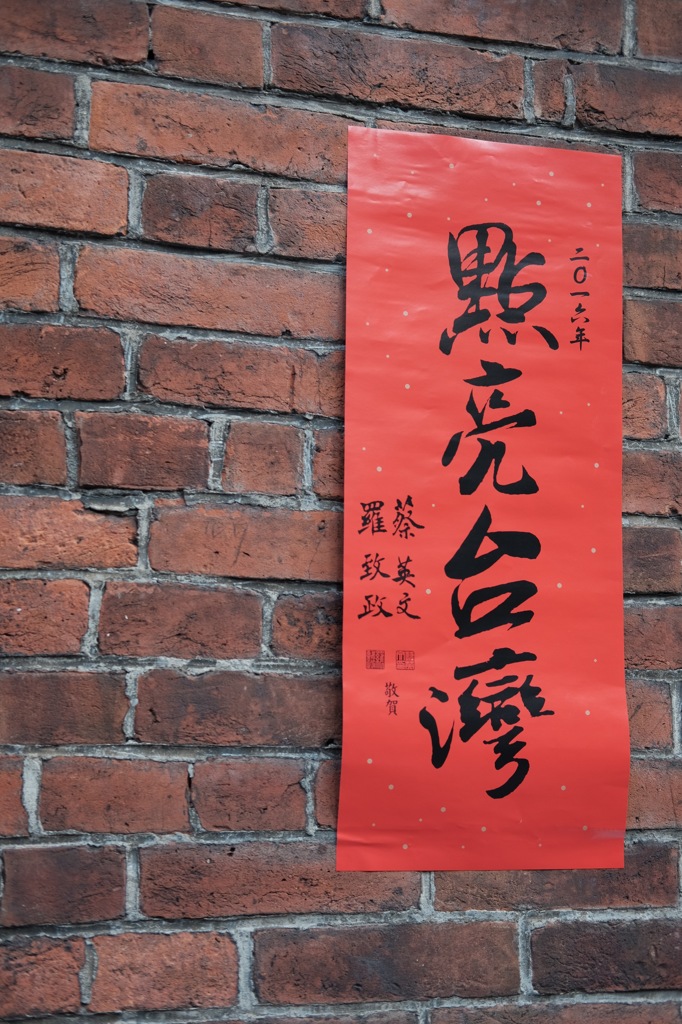 二〇一六年
點亮台灣
蔡英文
羅致政
敬賀